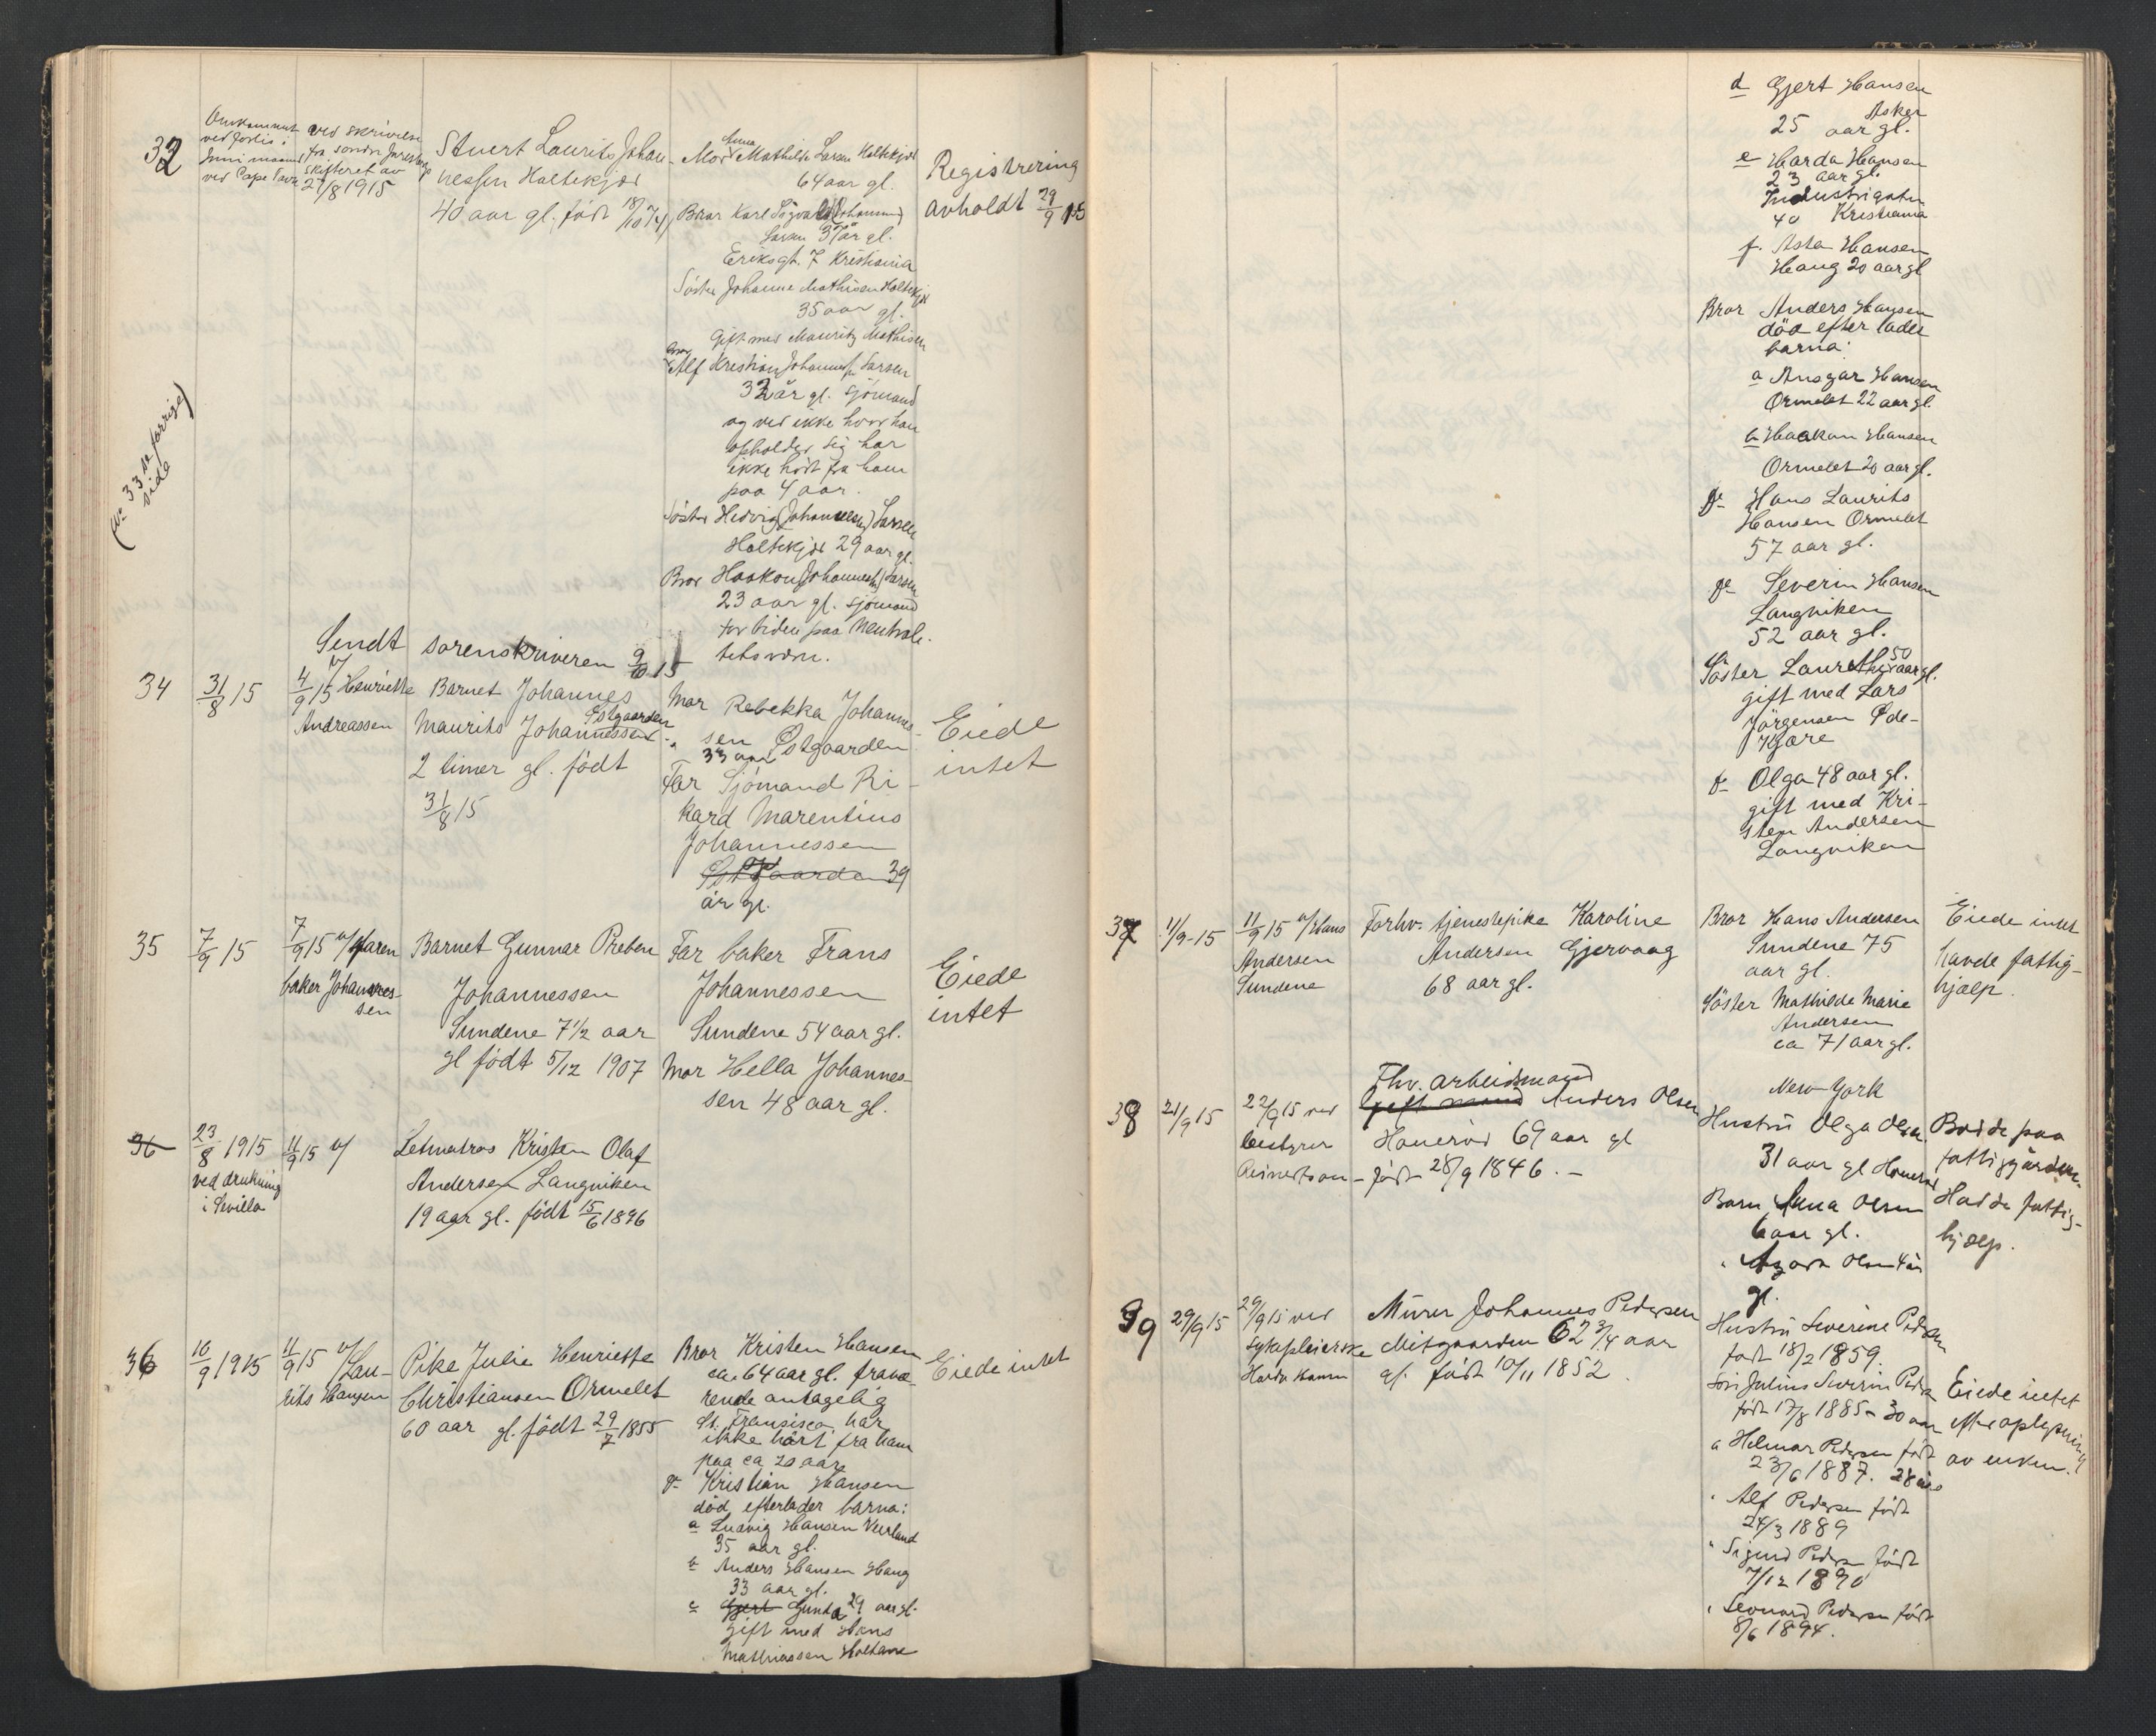 32
Omkommet
ved forlis i
Juni maaned
ved Cape
ved skrivelse
fra
skifteret av
27/8 1915
Stuert Laurits Johan-
nessen Holtekjær
40 aar gl. født 18/10 74
Mor Anna Mathilde Larsen Holtekjær
64 aar gl.
Bror Karl Sigvald (Johannessen)
Larsen 37 år gl.
Eriksgt. 7 Kristiania
Søster Johanne Mathisen Holtekjær
35 aar gl.
Gift med Mauritz Mathisen
Bror
Alf Kristian Johannessen Larsen
32 år gl. sjömand
og ved ikke hvor han
opholder sig har
ikke hört fra ham
paa 4 aar.
Søster Hedvig (Johannesen) Larsen
Holtekjær 29 aar gl.
Bror Haakon (Johannessen) Larsen
23 aar gl. sjömand
for tiden paa Neutrali-
tetsværn.
Registrering
avholdt 29/9 15
(No 33 se forrige
side)
Sendt sorenskriveren 9/10 15
34
31/8 15
4/9 15 v/ Henriette
Andreassen
Barnet Johannes
Maurits Johannessen
Østgaarden
2 timer gl. født
31/8 15
Mor Rebekka Johannes-
sen Østgaarden
33 aar
Far Sjömand Ri-
kard Marentius
Johannessen
Østgaarden 39
år gl.
Eiede
intet
35
7/9 15
7/9 15 v/ faren
baker Johannes-
sen
Barnet Gunnar Preben
Johannessen
Sundene 7 1/2 aar
gl født 5/12 1907
Far baker Frans
Johannessen
Sundene 54 aar gl.
Mor Hella Johannes-
sen 48 aar gl.
Eiede
intet
36
23/8 1915
ved drukning
i Sevilla
11/9 15 v/
Letmatros Kristen Olaf
Andersen Langviken
19 aar gl. født 15/6 1896
36
10/9 1915
11/9 15 v/ Lau-
rits Hansen
Pike Julie Henriette
Christiansen Ormelet
60 aar gl. født 29/7 1855
Bror Kristen Hansen
ca. 64 aar gl. fravæ-
rende antagelig
St. Fransisco, har
ikke hört fra ham
paa ca 20 aar
do Kristian Hansen
död, efterlader barna:
a Ludvig Hansen Veerland
35 aar gl.
b Anders Hansen Haug
33 aar gl.
c Gjert Gunda 29 aar gl.
gift med Hans
Mathiassen Holtane
Eiede intet
d Gjert Hansen
Asker
25 aar gl.
e Harda Hansen
23 aar gl.
Industrigaten
40 Kristiania
f. Asta Hansen
Haug 20 aar gl
Bror Anders Hansen
död efterlader
barna:
a Ansgar Hansen
Ormelet 22 aar gl.
b Haakon Hansen
Ormelet 20 aar gl.
do Hans Laurits
Hansen Ormelet
57 aar gl.
do Severin Hansen
Langviken
52 aar gl.
Søster Laurethe 50 aar gl.
gift med Lars
Jörgensen Øde-
Kjære
do Olga 48 aar gl.
gift med Kri-
sten Andersen
Langviken
37
11/9-15
11/9 15 v/ Hans
Andersen
Sundene
Forhv. tjenestepike Karoline
Andersen Gjervaag
68 aar gl.
Bror Hans Andersen
Sundene 75
aar gl.
Søster Mathilde Marie
Andersen
ca 71 aar gl.
New York
Eiede intet
havde fattig-
hjælp.
38
21/9 15
22/9 15 ved
bestyrer
Fhv. arbeidsmand
Gift mand Anders Olsen
Honerød 69 aar gl
født 28/9 1846. -
Hustru Olga Olsen
31 aar gl Honerød
Barn Anna Olsen
6 aar gl.
Olsen 4 år
gl.
Bodde paa
fattiggården.
Hadde fattig-
hjælp.
39
29/9 15
29/9 15 ved
Sykepleierske
Murer Johannes Pedersen
Mitgaarden 62 3/4 aar
gl. født 10/11 1852.
Hustru Severine Pedersen
født 18/2 1859.
Søn Julius Severin Pedersen
født 17/8 1885 - 30 aar
" Helmar Pedersen født
23/6 1887. 28 års
" Alf Pedersen født
24/3 1889
" Sigurd Pedersen født
7/12 1890
" Leonard Pedersen født
8/6 1894.
Eiede intet
efter oplysning
av enken.